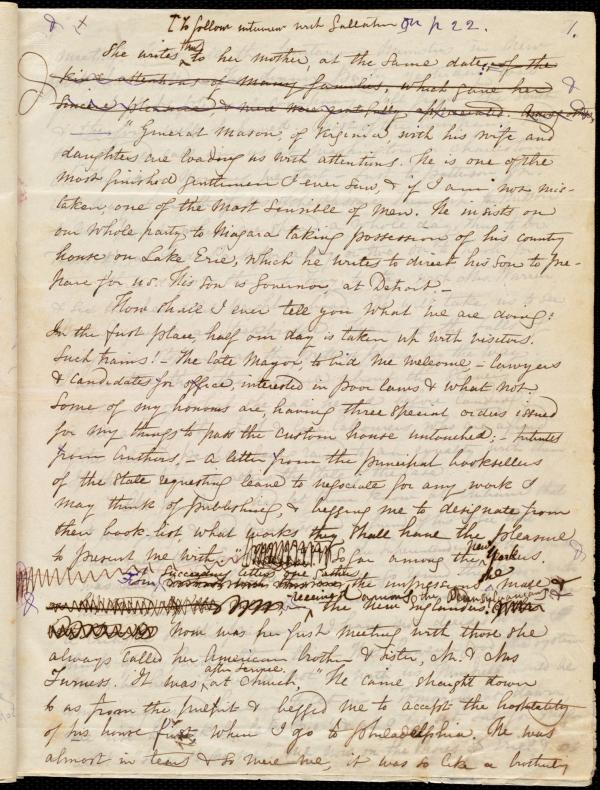 [To follow interview with Gallatin on p 22. 1.
She writes thus to her mother, at the same date, of the
kind attentions of many families, which gave her
sincere pleasure, & were most gratefully appreciated.
"General Mason, of Virginia with his wife, and
daughters are loading us with attentions. He is one of the
most finished gentlemen I ever saw, & if I am not mis-
taken, one of the most sensible of men. He insists on
our whole party, to Niagara taking possession of his country
house on Lake Erie, which he writes to direct his son to pre-
pare for us. His son is Governor at Detroit –
How shall I ever tell you what we are doing!
In the first place, half our day is taken up with visitors.
Such trains! – The late Mayor, to bid me welcome – lawyers
& candidates for office, interested in poor laws & what not
Some of my honours are, having three special orders issued
for my things to pass the custom house untouched; – tributes
from authors, – a letter from the principal booksellers
of the State requesting leave to negociate for any work I
may think of publishing, & begging me to designate from
their book-list, what works they shall have the pleasure
to present me with." So far among the New Yorkers.
From succeeding letters, one gathers the impressions she made &
received among the Pennsylvanians &
the New Englanders.
Now was her first meeting with those she
always called her American brother & sister, Mr. & Mrs
Furness. It was after service, at church. "He came straight down
to us from the pulpit & begged me to accept the hospitality
of his house when I go to Philadelphia. He was
almost in tears & so were we, it was so like a brotherly